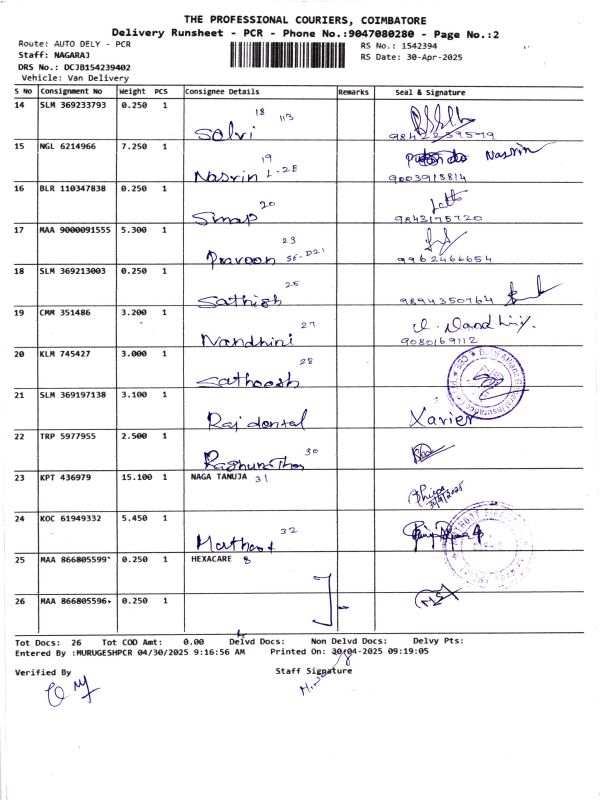 THE PROFESSIONAL COURIERS, COIMBATORE
Delivery Runsheet - PCR - Phone No.:9047080280 - Page No.:2
Route: AUTO DELY - PCR RS No.: 1542394
Staff: NAGARAJ RS Date: 30-Apr-2025
DRS No.: DCJB154239402
Vehicle: Van Delivery
S No Consignment No Weight PCS Consignee Details Remarks Seal & Signature
14 SLM 369233793 0.250 1 18 113
Selvi 9842259579
15 NGL 6214966 7.250 1 19 Nasrin
Nasrin L-2E 9003913814
16 BLR 110347838 0.250 1 20
9843175720
17 MAA 9000091555 5.300 1 23
Pravoon SE-D21 9962466654
18 SLM 369213003 0.250 1 25
Sathish 9894350764
19 CMM 351486 3.200 1 27
Nandhini 9080169112
20 KLM 745427 3.000 1 28
Sathoosh
21 SLM 369197138 3.100 1
Raj dontal Xavier
22 TRP 5977955 2.500 1 30
23 KPT 436979 15.100 1 NAGA TANUJA 31
24 KOC 61949332 5.450 1 32
25 MAA 866805599 0.250 1 HEXACARE 8
26 MAA 866805596 0.250 1
Tot Docs: 26 Tot COD Amt: 0.00 Delvd Docs: Non Delvd Docs: Delvy Pts:
Entered By :MURUGESHPCR 04/30/2025 9:16:56 AM Printed On: 30-04-2025 09:19:05
Verified By Staff Signature